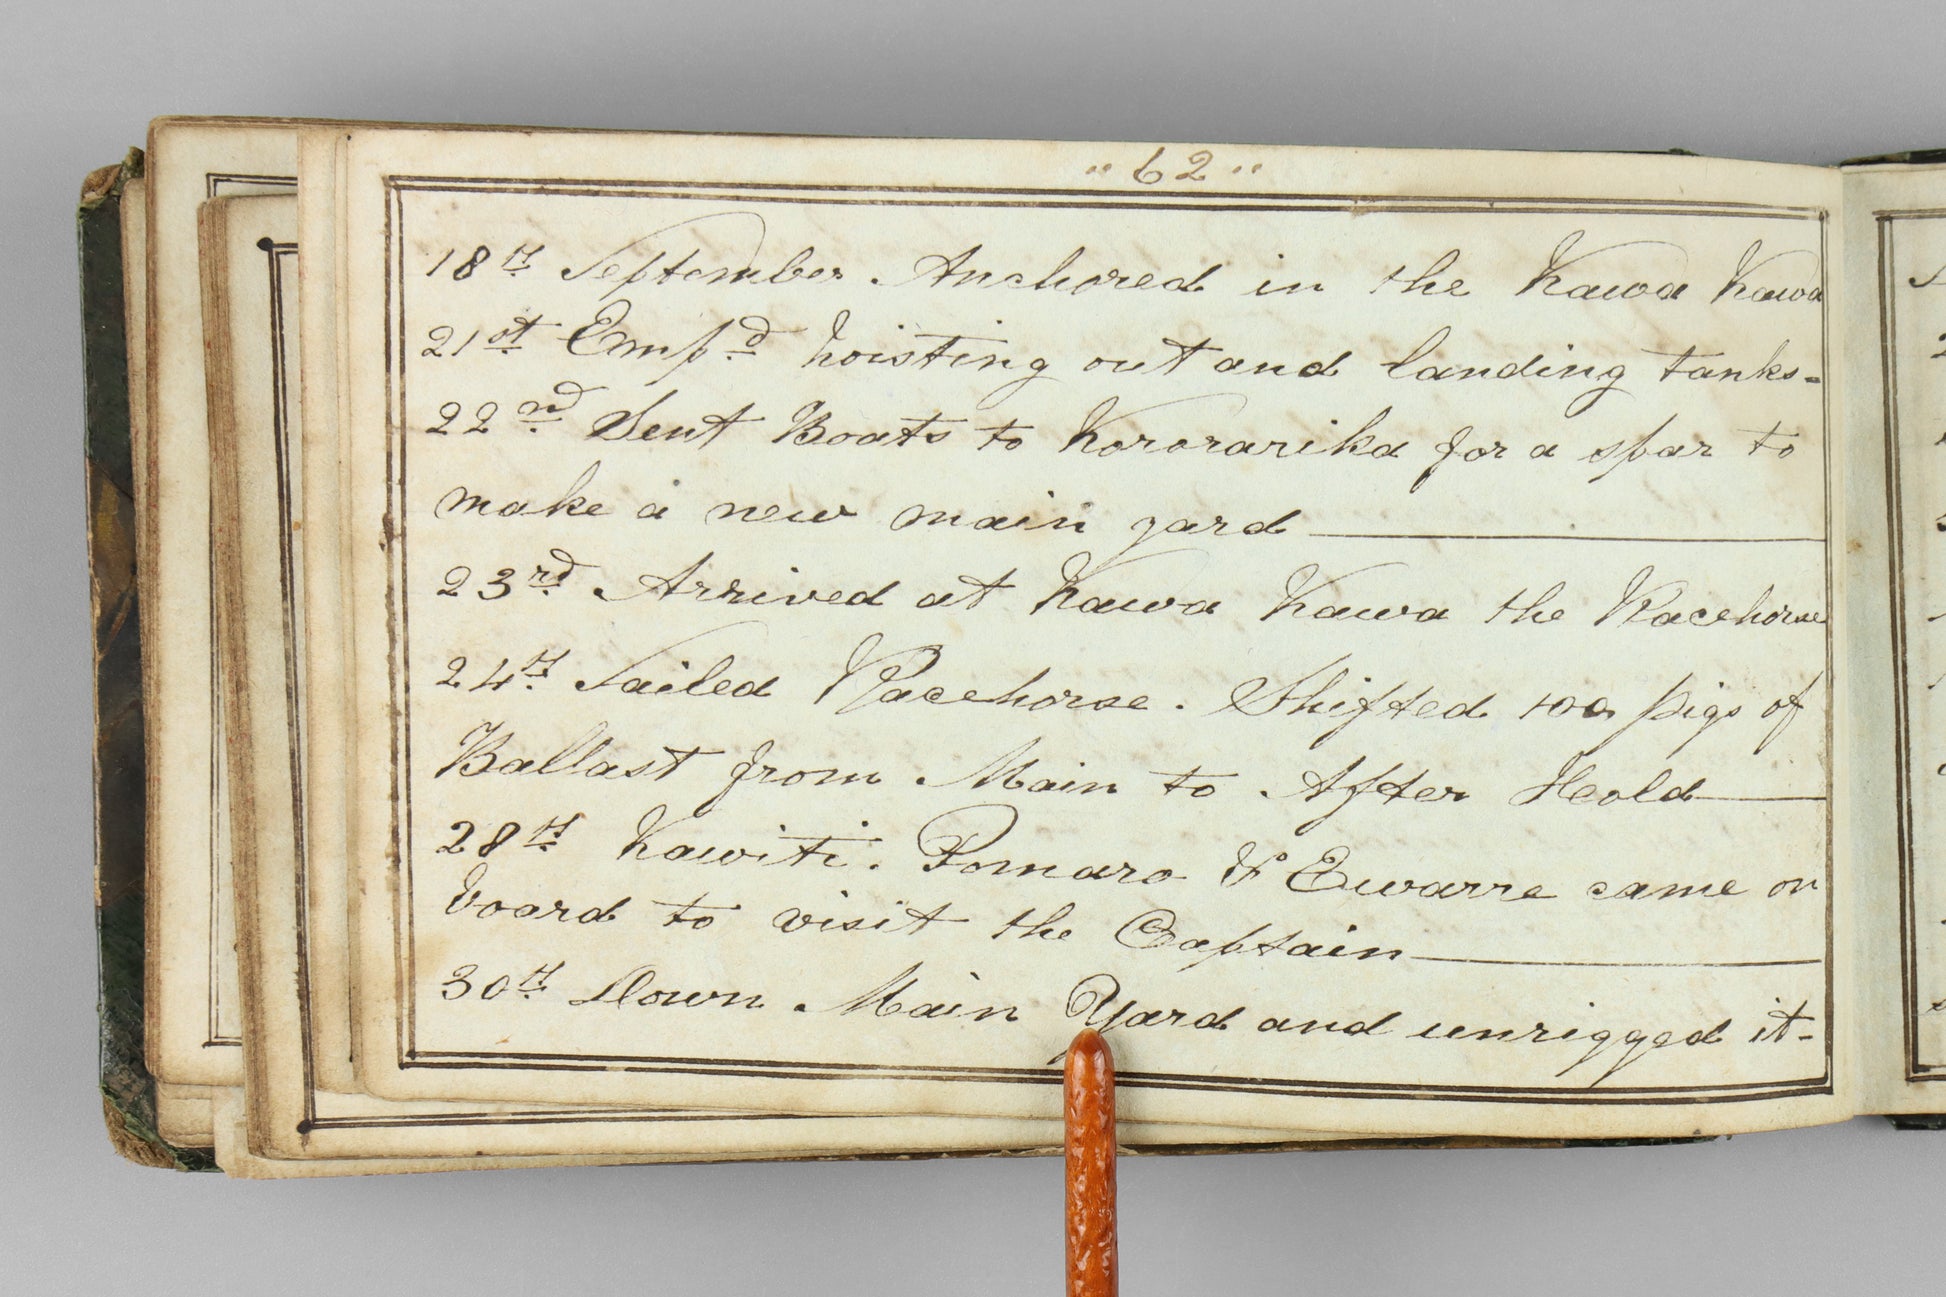 " 62 "
18th September. Anchored in the Kawa Kawa
21st Emp.d hoisting out and landing tanks-
22nd Sent Boats to Kororarika for a spar to
make a new main yard
23rd Arrived at Kawa Kawa the Racehorse
24th Sailed Racehorse. Shifted 100 pigs of
Ballast from Main to After Hold
28th Kawiti. Pomaro & Ewarre came on
board to visit the Captain
30th Down Main Yard and unrigged it-